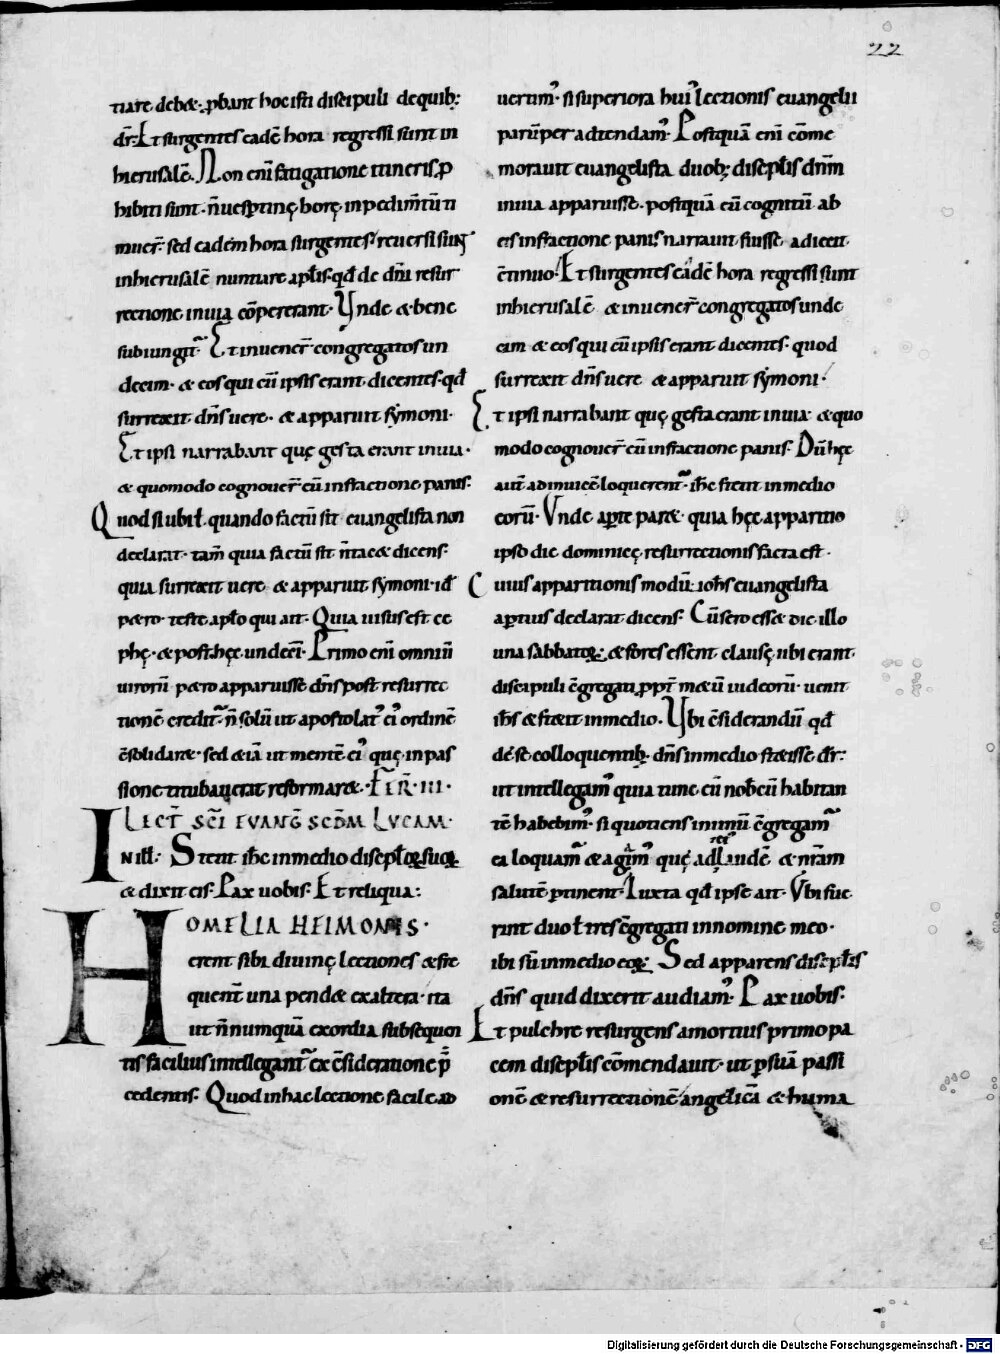 22
tiare debet, ꝓbant hoc isti discipuli de quibꝰ
dr̄. Et surgentes eadē hora regressi sunt in
hierusalē. Non enī fatigatione itineris p̱ro
hibiti sunt, n̄ uespertinę horę inpedimtū ti
muer̄ sed eadem hora surgentes reuersi sunt
in hierusalē nuntiare apl̄is qđ de dn̄i resur
rectione in uia cōpererant. Unde & bene
subiungit̄. Et inuener̄ congregatos un
decim. & eos qui cū ipsis erant dicentes. qđ
surrexit dn̄s uere. & apparuit symoni.
Et ipsi narrabant quę gesta erant in uia.
& quomodo cognouer̄ eū in fractione panis.
Quod si ubi ł quando factū sit euangelista non
declarat. tam̄ quia factū sit n̄ tacet dicens.
quia surrexit uere & apparuit symoni. id ē
petro. teste apl̄o qui ait. Quia uisus est ce
phę. & post hęc undeci. Primo enī omniū
uirorū petro apparuisse dn̄s post resurrec
tionē credit̄. n̄ solū ut apostolat̄ eiꝰ ordinē
c̄solidaret. sed & iā ut mentē eiꝰ quę in pas
sione titubauerat reformaret. FER. III.
LECT SC̄I EUANḠ SCDM LUCAM.
IN ILL. Stetit ih̄c in medio discipl̄oꝝ suoꝝ
& dixit eis. Pax uobis. Et reliqua:
HOMELIA HEIMONIS.
Herent sibi diuinę lectiones & fre
quent̄ una pendet ex altera. ita
ut n̄numquā exordia subsequen
tis facilius intellegant̄ ex c̄sideratione p̄
cedentis. Quod in hac lectione facile ad
uertimꝰ. si superiora huiꝰ lectionis euangelii
parūper adtendamꝰ. Postquā enī cōme
morauit euangelista duobꝰ discipl̄is dn̄m
in uia apparuisse. postquā eū cognitū ab
eis in fractione panis narrauit fuisse adiecit
c̄tinuo. Et surgentes eadē hora regressi sunt
in hierusalē & inuener̄ congregatos unde
cim & eos qui cū ipsis erant dicentes. quod
surrexit dn̄s uere & apparuit symoni.
Et ipsi narrabant quę gesta erant in uia & quo
modo cognouer̄ eū in fractione panis. Dū hęc
aut̄ ad inuicē loquerent̄. ih̄c stetit in medio
eorū. Unde aperte patet. quia hęc apparitio
ipso die dominicę resurrectionis facta est.
Cuius apparitionis modū ioh̄s euangelista
apertius declarat dicens. Cū sero esset die illo
una sabbatoꝝ. & fores essent clausę ubi erant
discipuli c̄gregati ppt̄ metū iudeorū. uenit
ih̄s & stetit in medio. Ubi c̄siderandū qđ
de se colloquentibꝰ. dn̄s in medio stetisse dr̄.
ut intellegamꝰ quia tunc eū nob̄cū habitan
tē habebimꝰ. si quotiens in unū c̄gregamꝰ
ea loquamꝰ & agimꝰ quę ad ei laudē & nr̄am
salutē ptinent. Iuxta qđ ipse ait. Ubi fue
rint duo ł tres c̄gregati in nomine meo.
ibi sū in medio eoꝝ. Sed apparens discipl̄is
dn̄s quid dixerit audiamꝰ. Pax uobis.
Et pulchre resurgens a mortuis primo pa
cem discipl̄is cōmendauit. ut p suā passi
onē & resurrectionē angelicā & huma
Digitalisierung gefördert durch die Deutsche Forschungsgemeinschaft - DFG